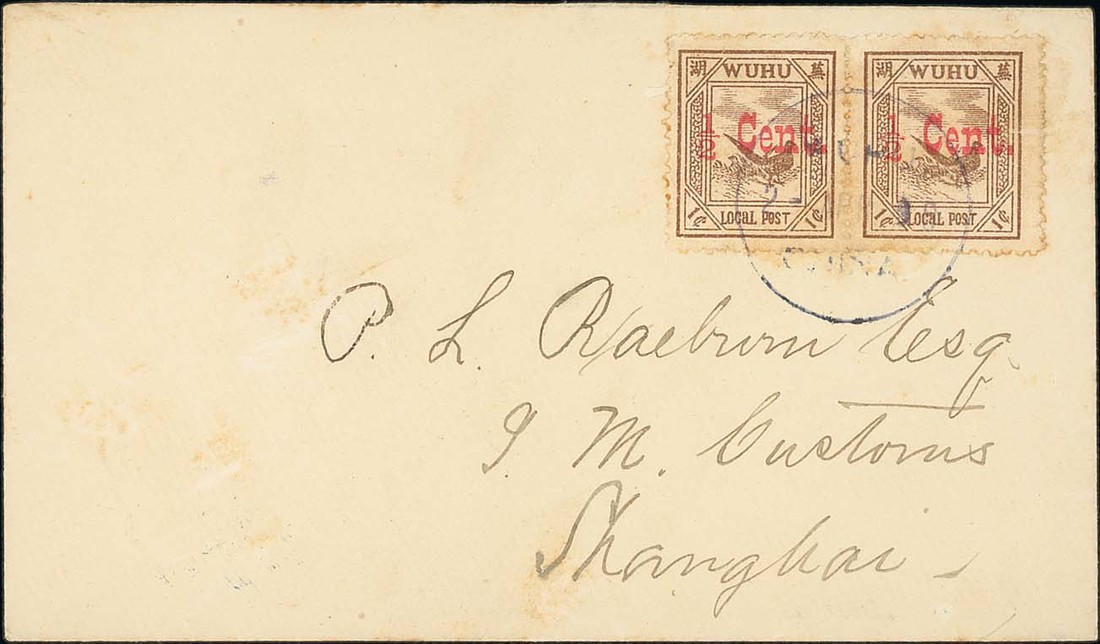 湖 WUHU 蕪
½ Cent.
1¢ LOCAL POST 1¢
湖 WUHU 蕪
½ Cent.
1¢ LOCAL POST 1¢
CHINA
P. L. Raeburn Esq
I M. Customs
Shanghai